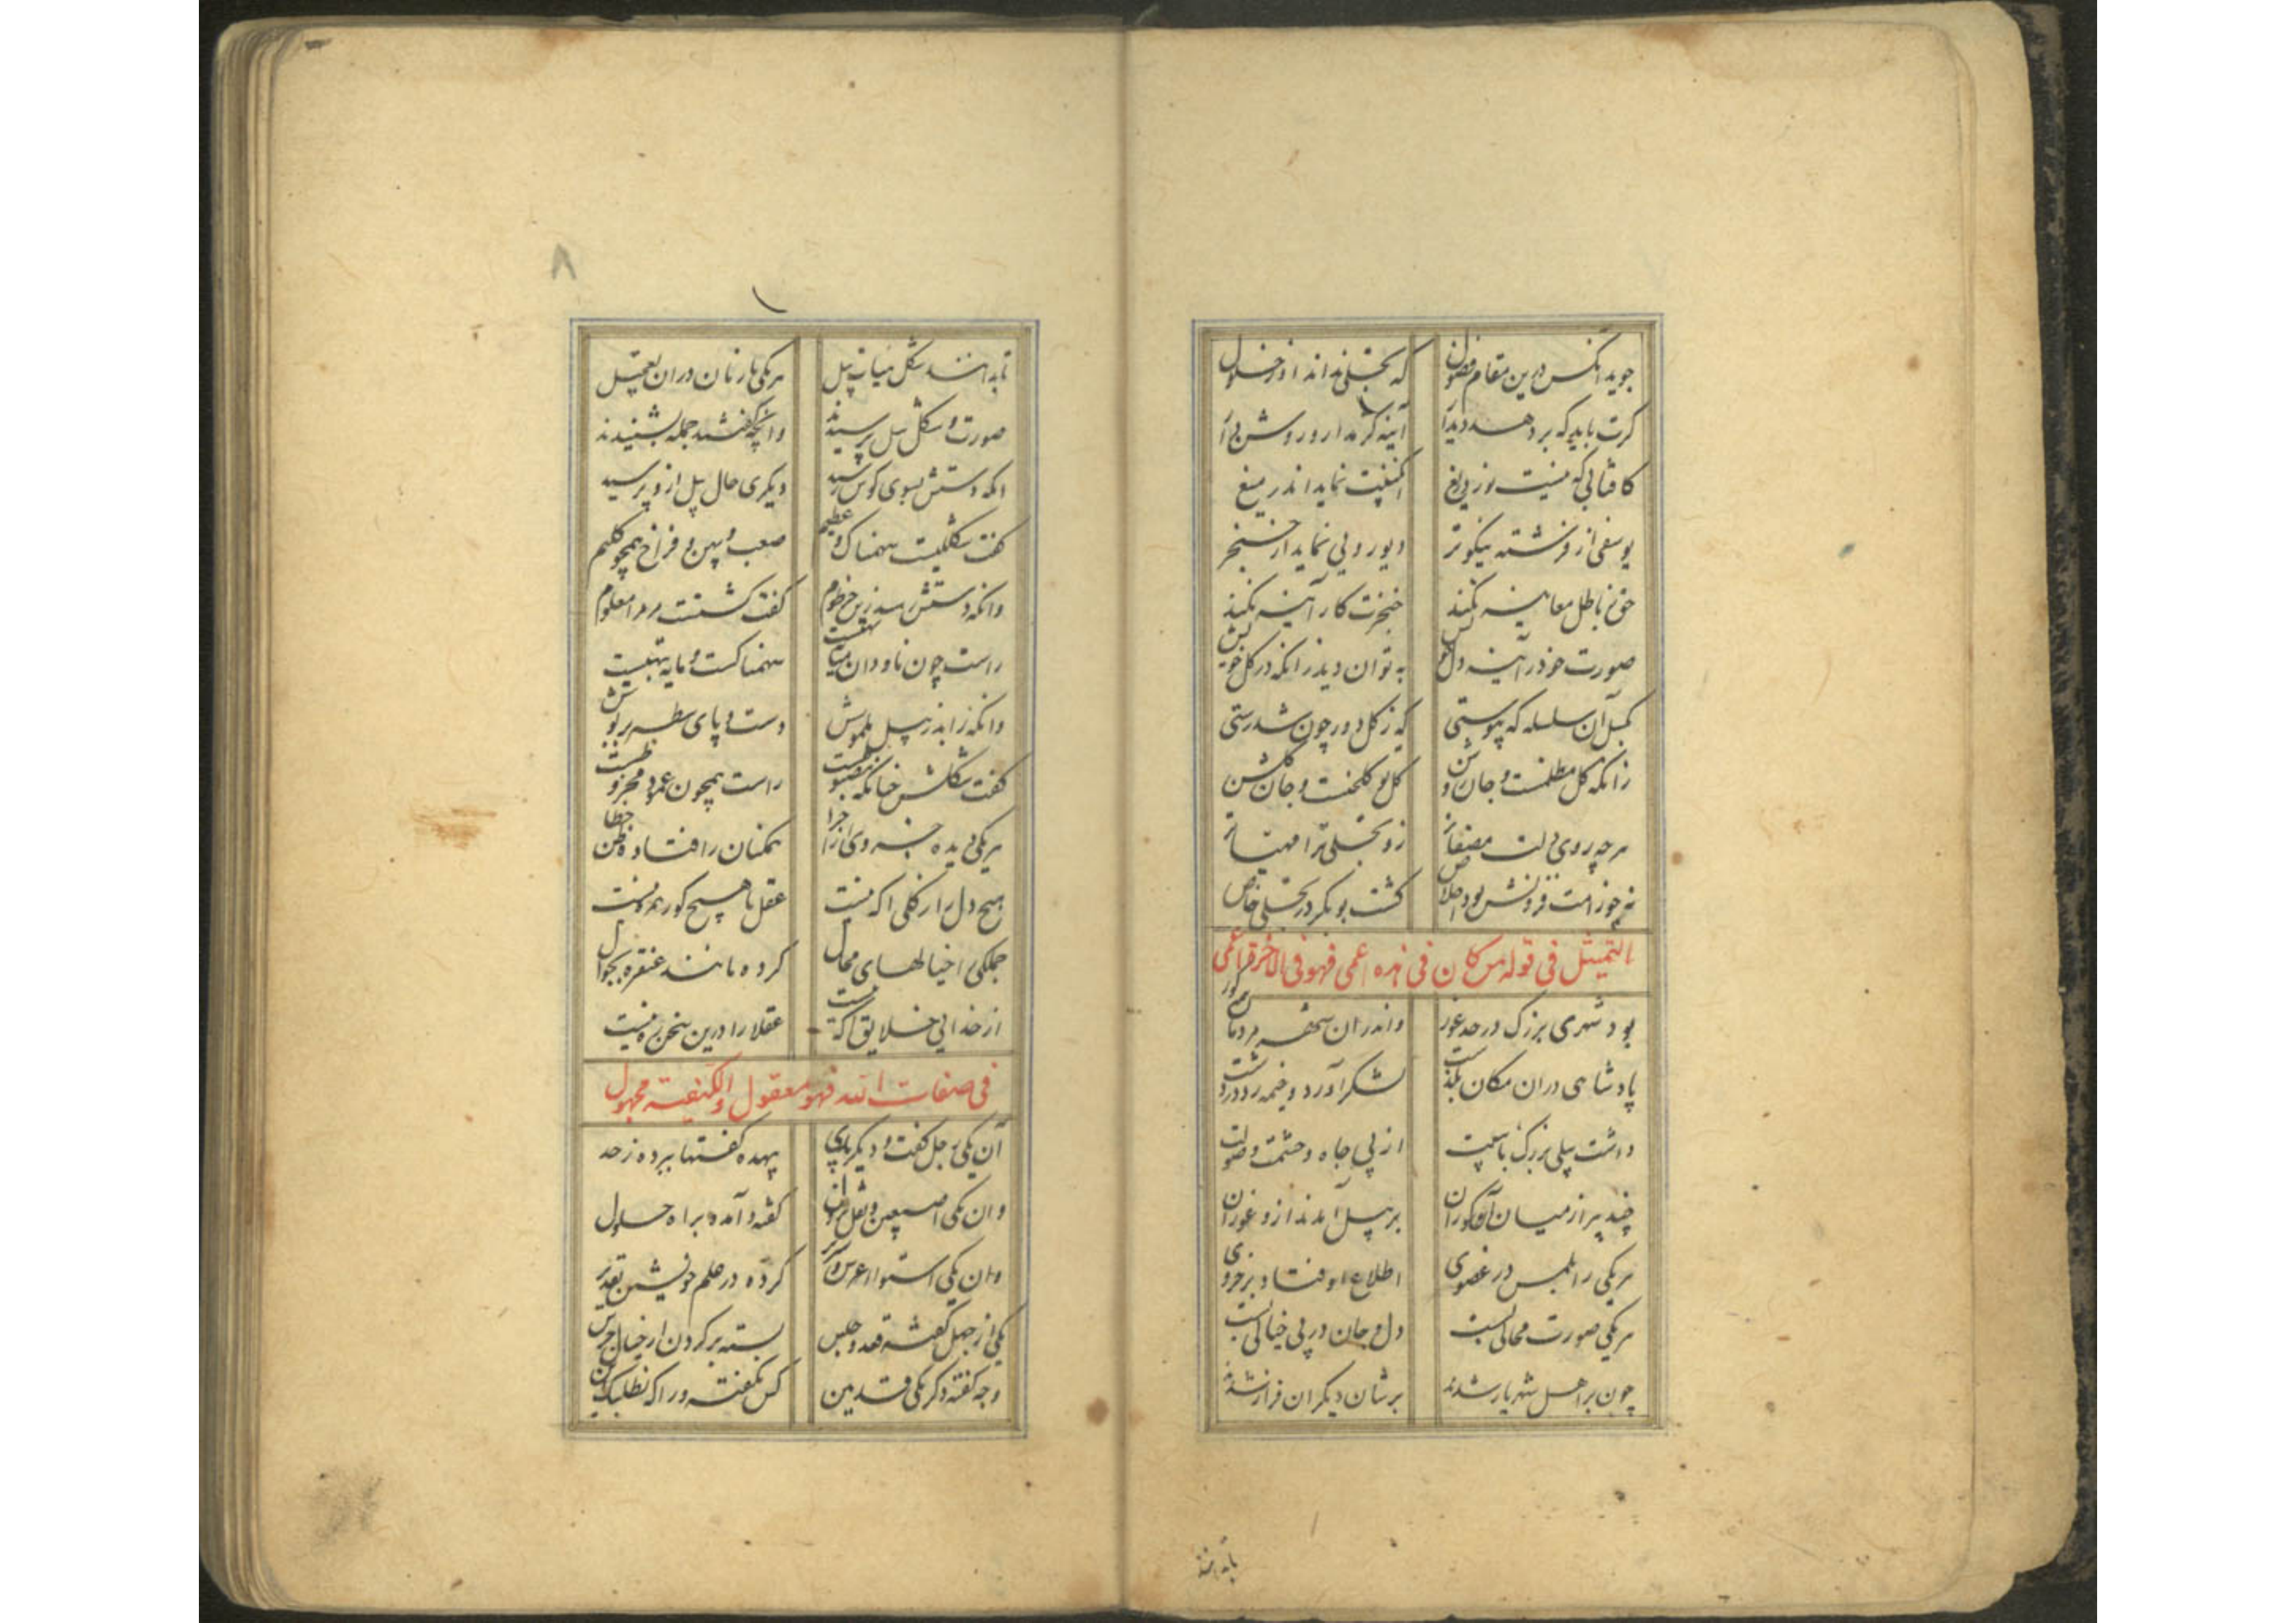 جوید آنکس درین مقام فضول
که تجلی نداند او ز حلول
گرت باید که بر دهد دیدار
آینه کژ مدار و روشن دار
کافتابی که نیست نور دریغ
آبگینت نماید اندر میغ
یوسفی از فرشته نیکوتر
دیو رویی نماید از خنجر
حق ز باطل معاینه نکند
خنجرت کار آینه نکند
صورت خود در آینه دل خویش
به توان دید زانکه در گل خویش
بگسل آن سلسله که پیوستی
که ز گل دور چون شدی رستی
زانکه گل مظلمست و جان روشن
گل تو گلخنست و جان گلشن
هرچه روی دلت مصفاتر
زو تجلی ترا مهیاتر
نه چو ز امت فزونش بود اخلاص
گشت بوبکر در تجلی خاص
التمثیل فی قوله من کان فی هذه اعمی فهو فی الاخرة اعمی
بود شهری بزرگ در حد غور
واندران شهر مردمان همه کور
پادشاهی دران مکان بگذشت
لشکر آورد و خیمه زد در دشت
داشت پیلی بزرگ با هیبت
از پی جاه و حشمت و صولت
چند پیر از میان آن کوران
بر پیل آمدند ازو غوران
هریکی را بلمس در عضوی
اطلاع اوفتاد بر جزوی
هریکی صورت محالی بست
دل و جان در پی خیالی بست
چون بر اهل شهر باز شدند
برشان دیگران فراز شدند
تابدانند
۸
تابدانند شکل و هیات پیل
هریکی تازنان دران تعجیل
صورت و شکل پیل پرسیدند
وآنچه گفتند جمله بشنیدند
آنکه دستش بسوی گوش رسید
دیگری حال پیل ازو پرسید
گفت شکلیست سهمناک و عظیم
صعب و پهن و فراخ همچو گلیم
وآنکه دستش رسید زی خرطوم
گفت گشتست مر مرا معلوم
راست چون ناودان میانه تهیست
سهمناکست و مایه تبهیست
وآنکه را بد ز پیل ملموسش
دست و پای سطبر پر بوسش
گفت شکلش چنانکه مضبوطست
راست همچون عمود مخروطست
هریکی دیده جزوی از اجزا
همگنان را فتاده ظن خطا
هیچ دل را ز کلی آگه نیست
عقل با هیچ کور همره نیست
جملگی را خیالهای محال
کرده مانند غتفره بجوال
از خدایی خلایق آگه نیست
عقلا را درین سخن ره نیست
فی صفات الله فهو معقول والکیفیة مجهول
آن یکی رجل گفت و دیگر ید
بیهده گفتها ببرده ز حد
وان یکی اصبعین و نقل و نزول
گفته و آمده براه حلول
وان یکی استوا و عرش و سریر
کرده در علم خویشتن تقدیر
یکی از جهل گفته قعد و جلس
بسته بر گردن از خیال جرس
وجه گفته دگر یکی قدمین
کس نگفته ورا که مطلبک این